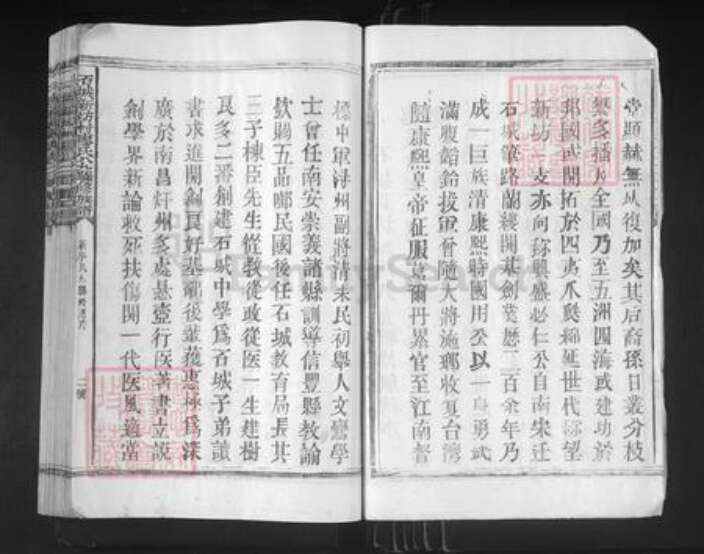 堂顯赫無以復加矣其后裔孫日叢分枝
繁多播及全國乃至五洲四海或建功於
邦國或開拓於四夷爪瓞綿延世代稱望
新坊一支亦向称興盛必仁公自南宋迁
石城筆路蘭縷開基創業歷二百余年乃
成一巨族清康熙時國用公以一身勇武
滿腹韜鈐拔軍晉隨大將施瑯收复台灣
隨康熙皇帝征服莫爾丹累官至江南督
標中軍浔州副將清末民初舉人文鸞學
士會任南安崇義諸縣訓導信豐縣教諭
欽賜五品啣民國後任石城教育局長其
三子棟臣先生從教從政從医一生建樹
良多二番創建石城中學爲石城子弟讀
書求進開創良好基礎後並獲惠極爲深
廣於南昌圩州多處悬壺行医著書立說
創學界新論救死扶傷開一代医風適當
石城新坊村陳氏公八修族譜
FamilySearch